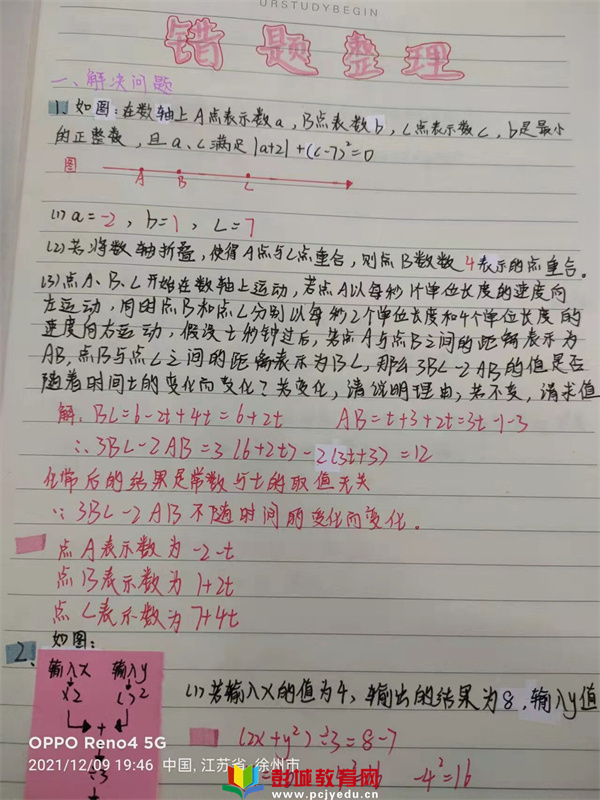 URSTUDYBEGIN
错题整理
一、解决问题
1. 如图:在数轴上A点表示数a,B点表数b,C点表示数c,b是最小
的正整数,且a、c满足|a+2|+(c-7)²=0
图
A B C
(1) a=-2,b=1,c=7
(2)若将数轴折叠,使得A点与C点重合,则点B数数4表示的点重合。
(3)点A、B、C开始在数轴上运动,若点A以每秒1个单位长度的速度向
左运动,同时点B和点C分别以每秒2个单位长度和4个单位长度的
速度向右运动,假设t秒钟过后,若点A与点B之间的距离表示为
AB,点B与点C之间的距离表示为BC,那么3BC-2AB的值是否
随着时间t的变化而变化?若变化,请说明理由;若不变,请求值
解:BC=6-2t+4t=6+2t AB=t+3+2t=3t
∴3BC-2AB=3(6+2t)-2(3t+3)=12
化常后的结果是常数与t的取值无关
∵3BC-2AB不随时间的变化而变化.
点A表示数为-2-t
点B表示数为1+2t
点C表示数为7+4t
2. 如图:
输入x 输入y
x2 ( )²
+
÷3
(1)若输入x的值为4,输出的结果为8,输入y值
(2x+y²)÷3=8
-4²=16
OPPO Reno4 5G
2021/12/09 19:46 中国,江苏省,徐州市
彭城教育网
www.pcjyedu.cn